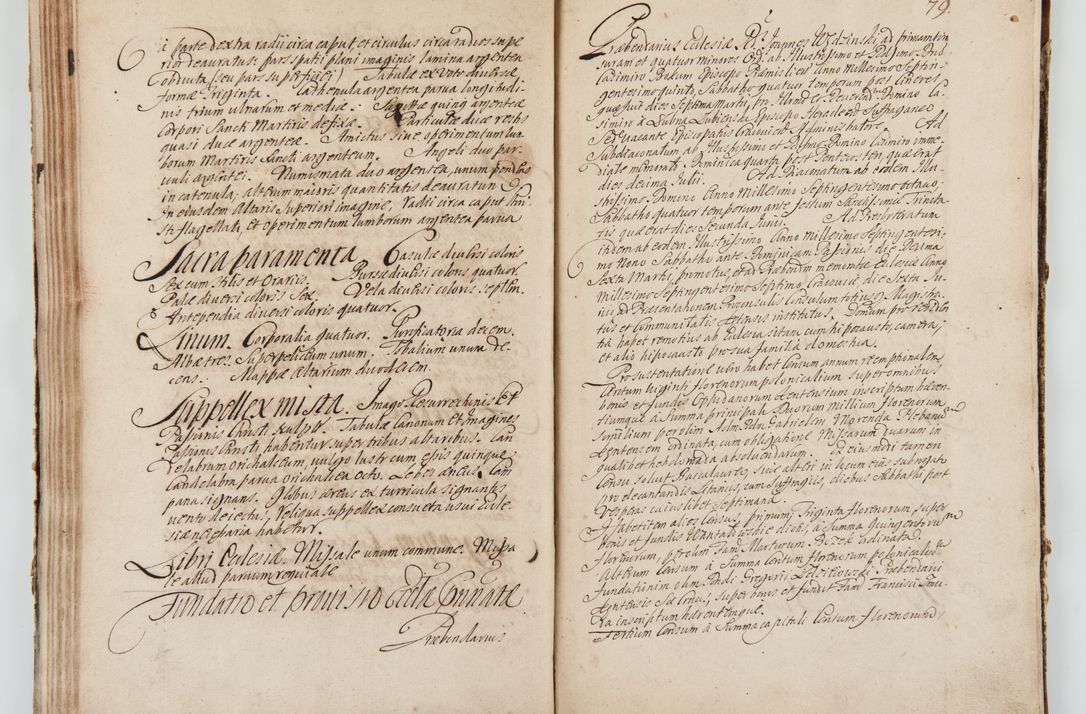 à parte dextra radii circa caput, et circulus circa radios supe
rior deauratus: pars spatii plani imaginis lamina argentea
obducta (seu pars superficiei) Tabulæ ex Voto diversæ
formæ Triginta. Cathenula argentea parva longitudi
nis trium ulnarum et mediæ. Sagittæ quinq argenteæ
Corpori Sancti Martiris defixæ. Particulæ duæ
quasi duæ argenteæ. Amictus sive operimentum lum
borum Martiris Sancti argenteum. Angeli duo par
vuli argentei. Numismata duo argentea, unum pendens
in catenula, alterum maioris quantitatis deauratum
In eiusdem Altaris Superiori imagine, Radii circa caput Chri
sti flagellati, et operimentum lumborum argentea parva
Sacra paramenta Casulæ diversi coloris
Sex cum Stolis et Orariis. Bursæ diversi coloris quatuor.
Pallæ diversi coloris Sex. Vela diversi coloris septem.
Antependia diversi coloris quatuor.
Linum. Corporalia quatuor. Purificatoria decem.
Albæ tres. Superpelliceum unum. Tobalium unum de
cens. Mappæ Altarium duodecim.
Suppellex mista. Imago Resurrectionis Et
Passionis Christi sculpta. Tabulæ Canonum et Imagines
Passionis Christi, habentur super tribus altaribus. Can
delabrum orichalceum, vulgo lustrum cum epis quinque
Candelabra parva orichalcea octo. Lebes æneus. Cam
pana signans. Globus æreus ex turricula signantis
vento deiectus, reliqua suppellex consueta usui Eccle
siæ necessaria habetur.
Libri Ecclesiæ. Missale unum commune. Missa
le aliud parvum requiale
Fundatio et provisio Ecclæ Connatæ
Præbendarius
79.
Præbendarius Ecclesiæ Joannes Wędzinski, ad primam ton
suram et quatuor minores Ord: ab Illustrissimo et Rssimo Dno
Casimiro Episcopo Anno Millesimo Septin
gentesimo quinto, Sabbatho quatuor temporum post Cineres
quæ fuit dies Septima Martii, pro Illmo et Reverend Domino Ca
simiro à Lubna Lubienski Episcopo Heracleen Suffraganeo
Sede vacante Episcopatus Cracovien Administratore. Ad
Subdiaconatum ab Illustrissimo et Rssmo Domino Casimiro imme
diate memorato Dominica quarta post Pentecosten, quæ erat
dies decima Julii. Ad Diaconatum ab eodem Illu
strissimo Domino Anno Millesimo Septingentesimo octavo,
Sabbatho quatuor temporum ante festum Sanctissimæ Trinita
tis quæ erat dies Secunda Junii. Ad Presbyteratum
itidem ab eodem Illustrissimo Anno Millesimo Septingentesi
mo Nono Sabbatho ante Dominicam Passionis die Decima
Sexta Martii, promotus, et ad Præbendam memoratæ Ecclesiæ Anno
Millesimo Septingentesimo Septimo Cracoviæ die Sexta Ju
nii ad Præsentationem Proconsulis Consulum totiusq Magistra
tus et Communitatis institutus. Domum pro residen
tia habet remotius ab Ecclesia sitam cum hipocausto, camera,
et alio hipocausto pro sua familia domestica.
Pro sustentatione vero habet Censum annum reemptionalem
Centum viginti florenorum polonicalium super omnibus
bonis et fundis Opidanorum inscriptum hæren
temque à Summa principali Duorum millium florenorum
similium per olim Adm Rdm Gabrielem Plebanum
ordinata, cum obligatione Missarum duarum in
qualibet hebdomada absolvendarum. Ex eius modi tamen
Censu solvit Baccalaureo, sive alteri in locum eius subrogato
pro decantandis Litaniis, cum Suffragiis, diebus Sabbathi post
Vesperas cuiuslibet septimana.
Habet item alios Census, primum, Triginta florenorum, super
bonis et fundis dictis, à Summa Quingentorum
florenorum, per olim Fam Martinum ordinata.
Alterum Censum à Summa Centum florenorum polonicaliu
Fundationum olim Rndi Gregorii Præbendarii
super bonis et fundis Fam Francisci
inscriptum hærentemque.
Tertium Censum à Summa capitali Centum florenorum